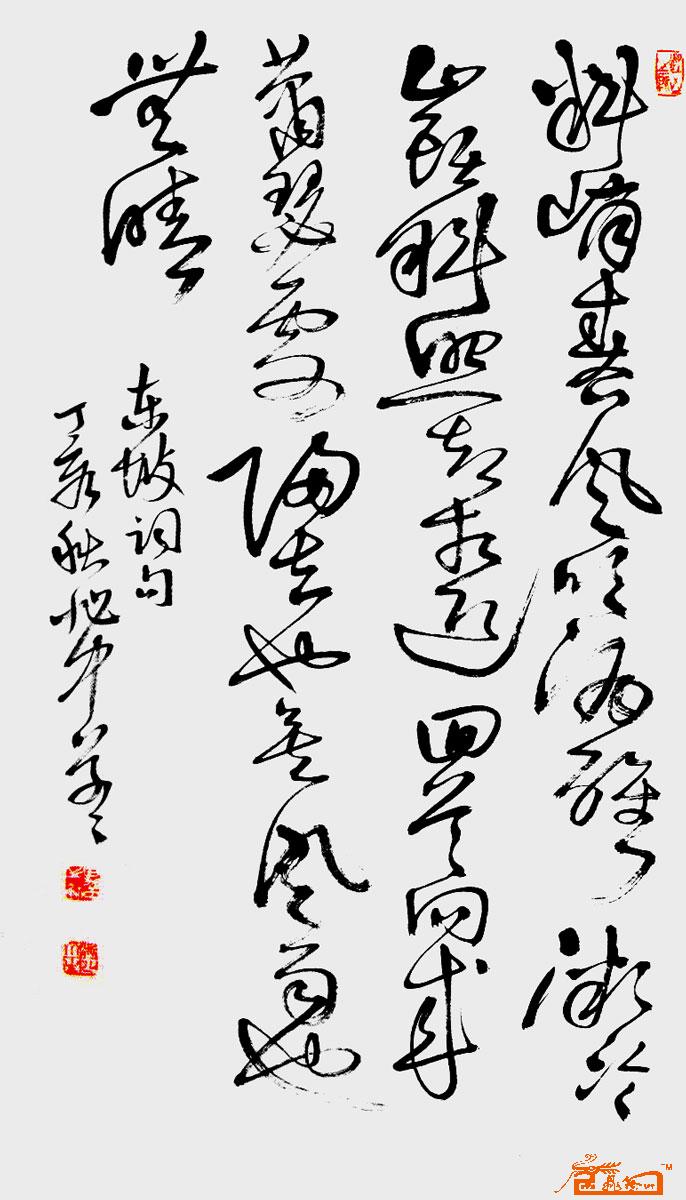 料峭春风吹酒醒微冷
山头斜照却相迎回首向来
萧瑟处归去也無風雨也
無晴
东坡词句
丁亥秋